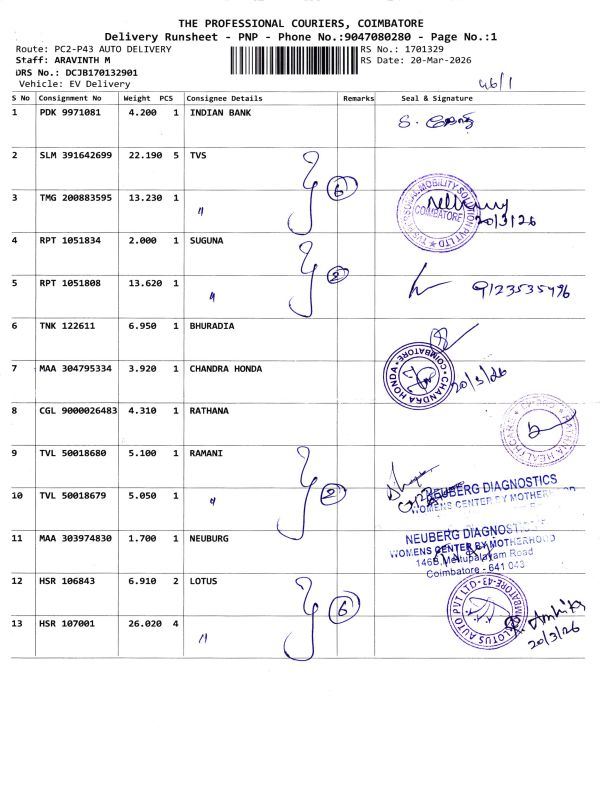 THE PROFESSIONAL COURIERS, COIMBATORE
Delivery Runsheet - PNP - Phone No.:9047080280 - Page No.:1
Route: PC2-P43 AUTO DELIVERY
RS No.: 1701329
Staff: ARAVINTH M
RS Date: 20-Mar-2026
DRS No.: DCJB170132901
Vehicle: EV Delivery
46/1
S No Consignment No Weight PCS Consignee Details Remarks Seal & Signature
1 PDK 9971081 4.200 1 INDIAN BANK
2 SLM 391642699 22.190 5 TVS
6
3 TMG 200883595 13.230 1 "
COIMBATORE
20/3/26
4 RPT 1051834 2.000 1 SUGUNA
2
5 RPT 1051808 13.620 1 "
9123535496
6 TNK 122611 6.950 1 BHURADIA
7 MAA 304795334 3.920 1 CHANDRA HONDA
CHANDRA HONDA COIMBATORE
20/3/26
8 CGL 9000026483 4.310 1 RATHANA
9 TVL 50018680 5.100 1 RAMANI
2
10 TVL 50018679 5.050 1 "
NEUBERG DIAGNOSTICS
WOMENS CENTER BY MOTHERHOOD
11 MAA 303974830 1.700 1 NEUBURG
NEUBERG DIAGNOSTICS
WOMENS CENTER BY MOTHERHOOD
146B, Mettupalayam Road
Coimbatore - 641 043
12 HSR 106843 6.910 2 LOTUS
6
LOTUS AUTO PVT LTD
13 HSR 107001 26.020 4 "
20/3/26